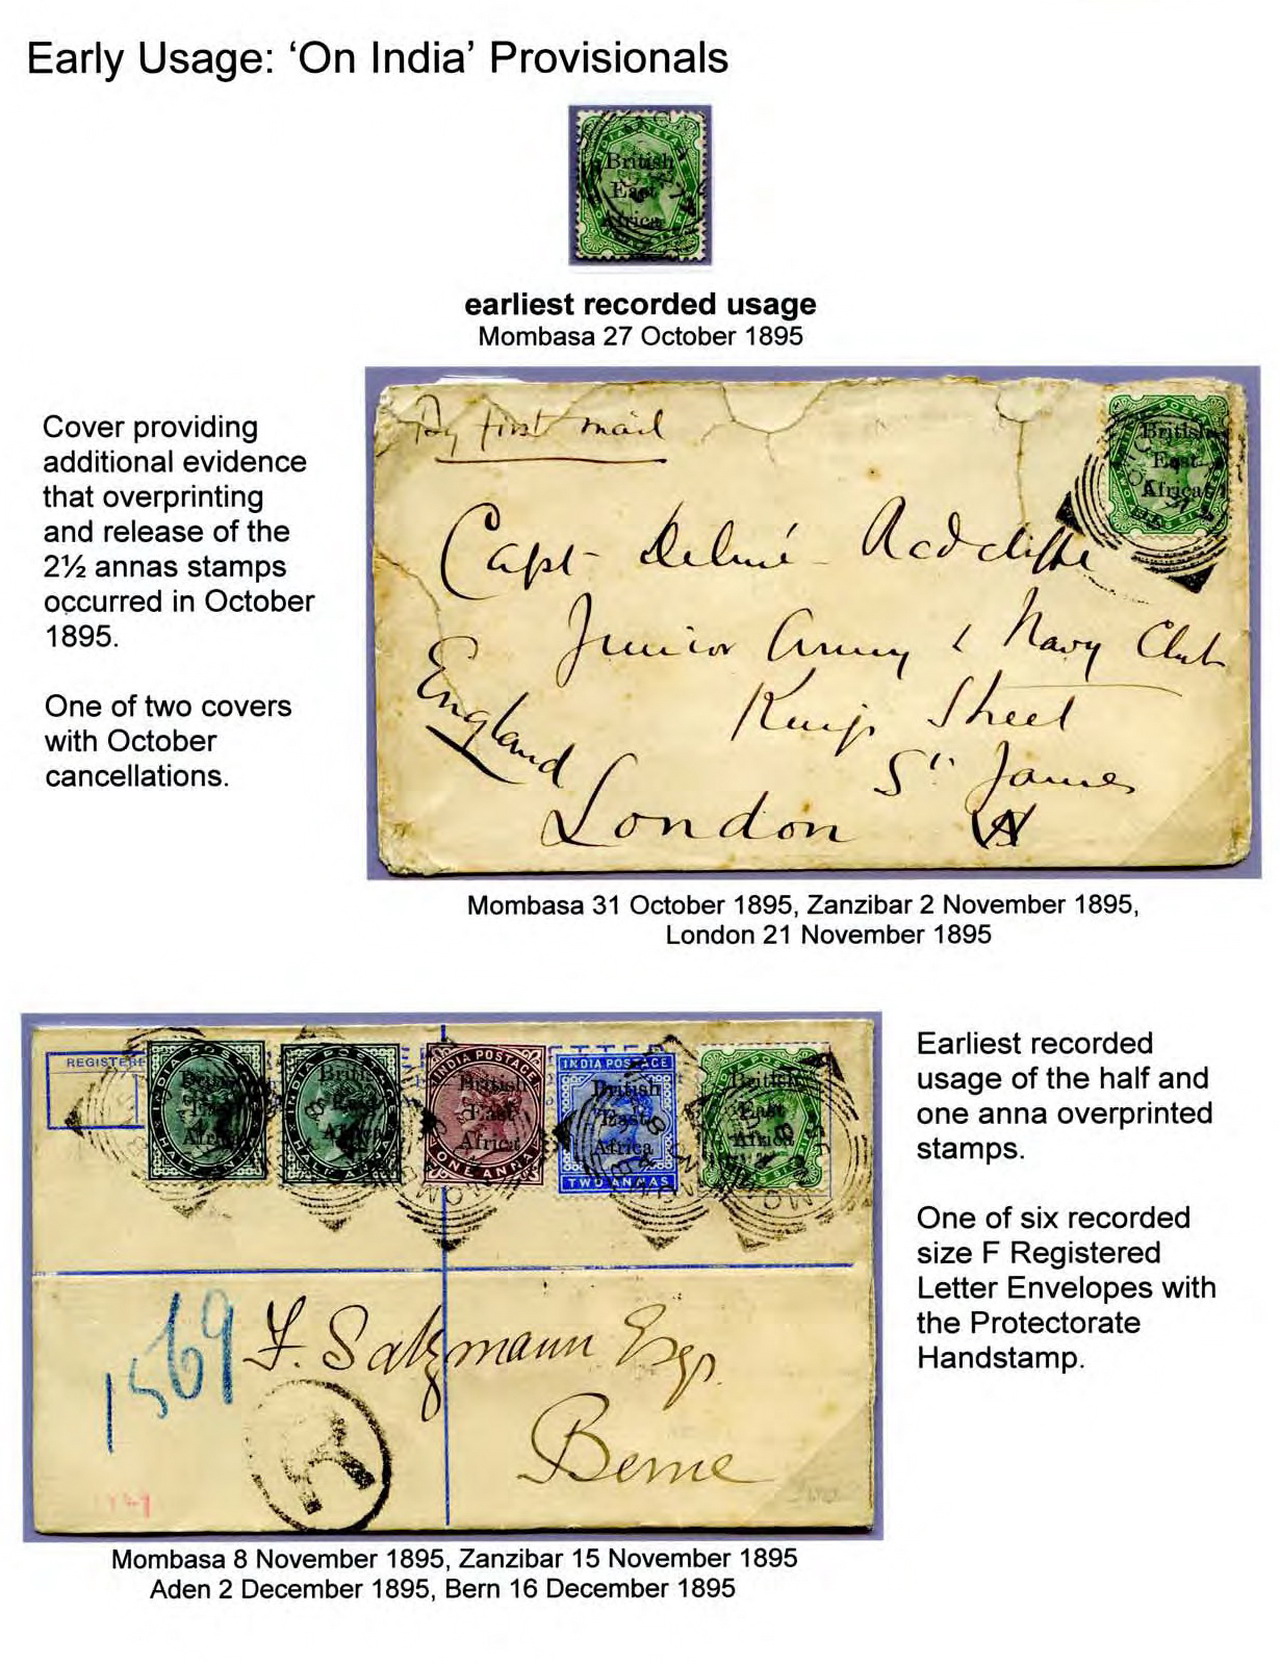 Early Usage: ‘On India’ Provisionals
British
East
Africa
earliest recorded usage
Mombasa 27 October 1895
Cover providing
additional evidence
that overprinting
and release of the
2½ annas stamps
occurred in October
1895.
One of two covers
with October
cancellations.
By first mail
British
East
Africa
Capt Delmé Radcliffe
Junior Army & Navy Club
King's Street
St James
England
London
Mombasa 31 October 1895, Zanzibar 2 November 1895,
London 21 November 1895
REGISTERE
INDIA POSTAGE
British
East
Africa
ONE ANNA
INDIA POSTAGE
British
East
Africa
TWO ANNAS
British
East
Africa
1569
F. Salzmann Esqr.
R
Berne
Earliest recorded
usage of the half and
one anna overprinted
stamps.
One of six recorded
size F Registered
Letter Envelopes with
the Protectorate
Handstamp.
Mombasa 8 November 1895, Zanzibar 15 November 1895
Aden 2 December 1895, Bern 16 December 1895